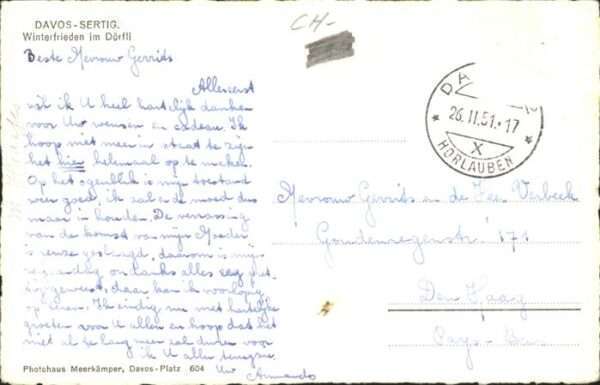 DAVOS-SERTIG.
Winterfrieden im Dörfli
CH-
Beste Mevrouw Gerrits
Allereerst
wil ik U heel hartelijk danken
voor Uw wensen en cadeau. Ik
hoop met meer in staat te zijn
het hier helemaal op te maken.
Op het ogenblik is mijn toestand
weer goed, ik zal er de moed dus
maar in houden. De verrassing
van de komst van mijn Moeder
is reuze geslaagd, daarom is mijn
ondanks alles
daar kan ik voorlopig
op teren. Ik eindig nu met hartelijke
groeten voor U allen en hoop dat het
niet al te lang meer zal duren voor
ik U allen terugzie
Uw Armando
DA
26.II.51.-17
X
HORLAUBEN
Mevrouw Gerrits en de Heer Verbeek
Goudenregenstr. 171
Den Haag
Pays-Bas
Photohaus Meerkämper, Davos-Platz 604